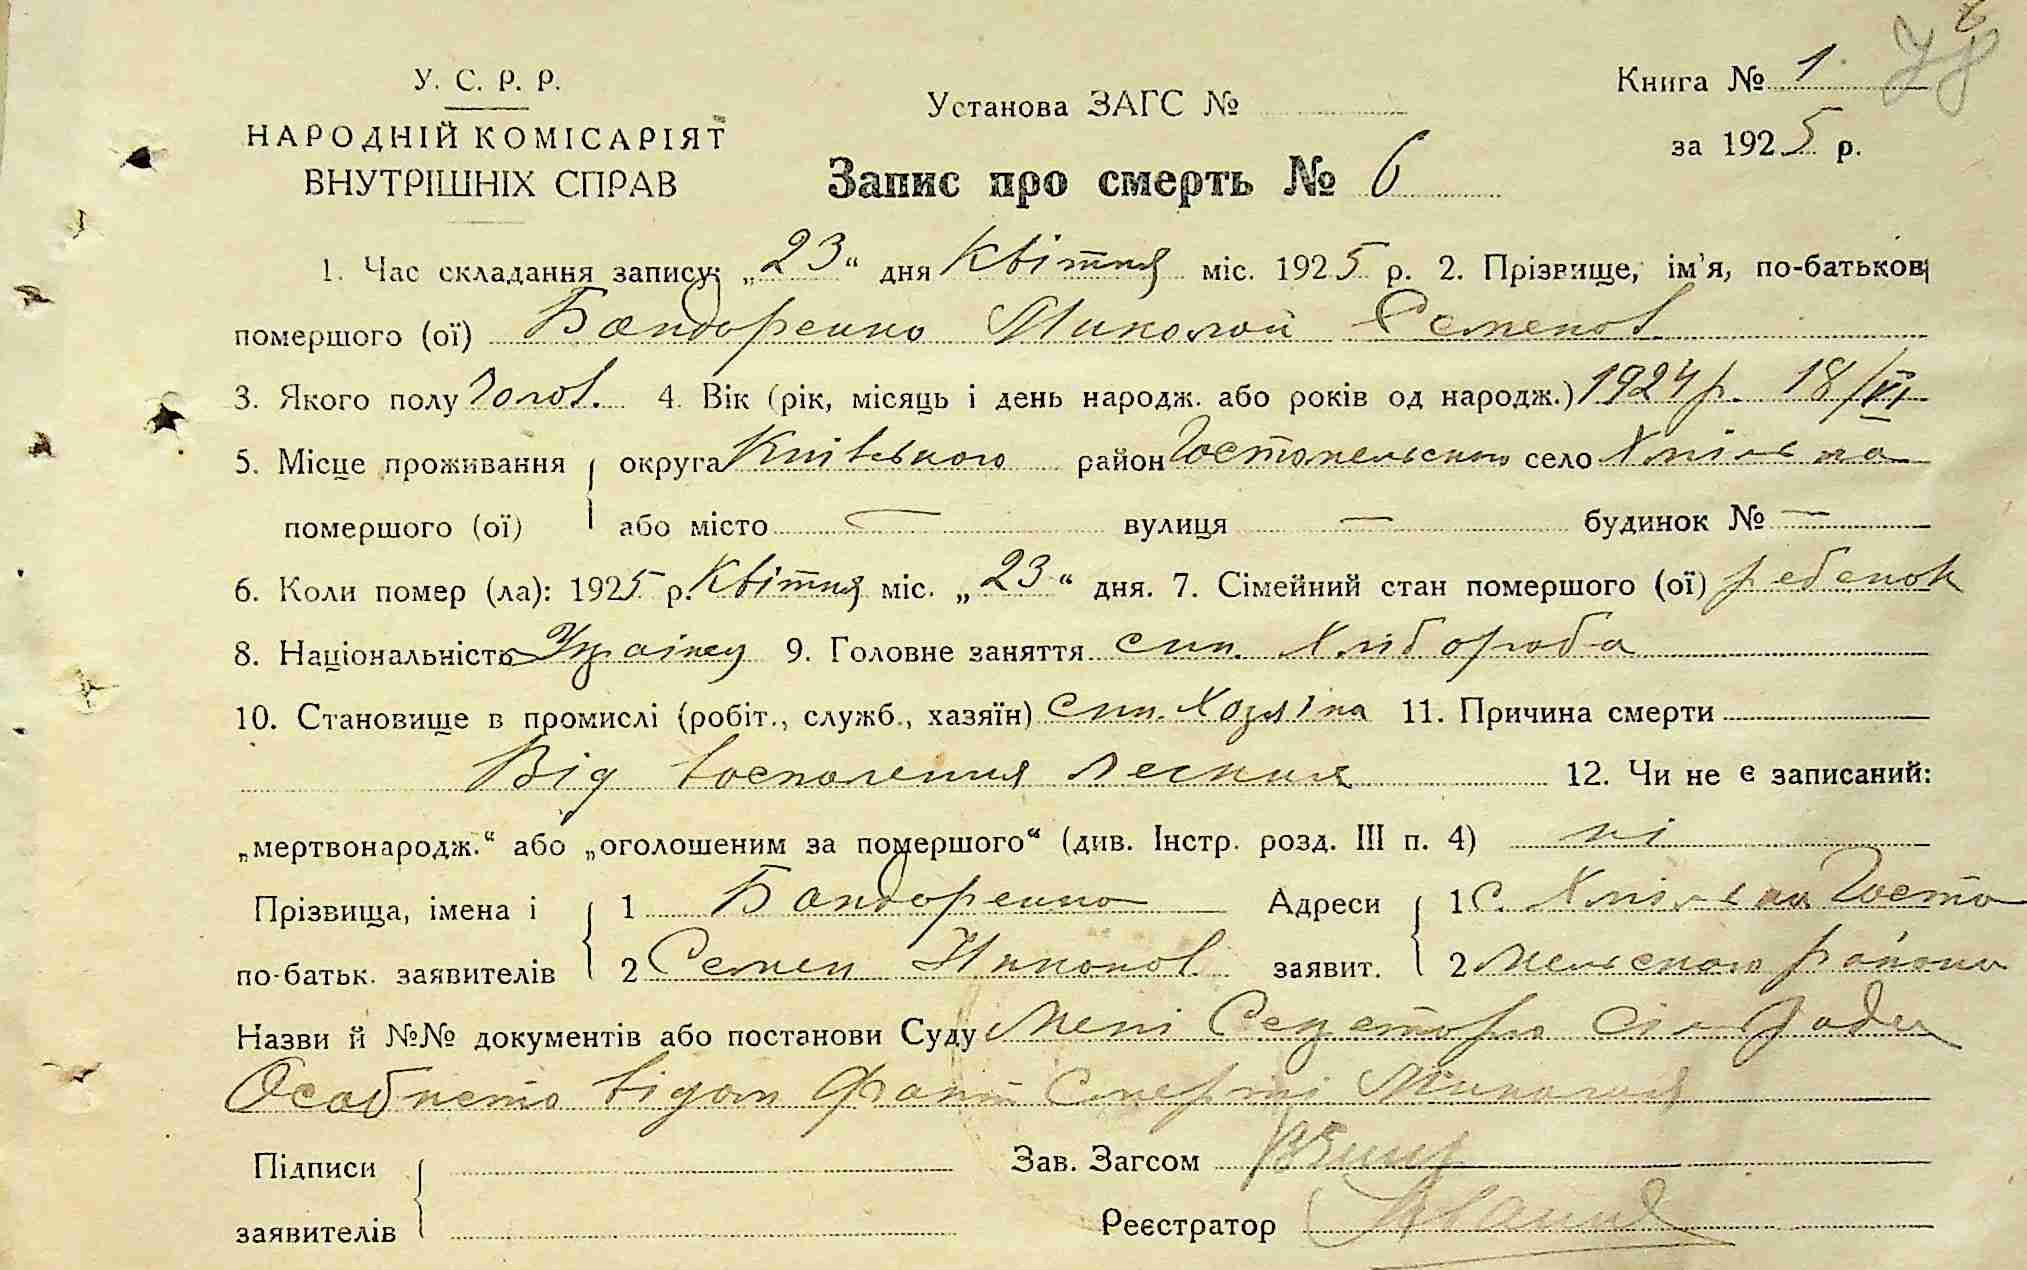 У. С. Р. Р.
НАРОДНІЙ КОМІСАРІЯТ
ВНУТРІШНІХ СПРАВ
Установа ЗАГС №
Книга № 1
за 1925 р.
Запис про смерть № 6
1. Час складання запису: „23“ дня Квітня міс. 1925 р. 2. Прізвище, ім'я, по-батькові
помершого (ої) Бандоренко Миколай Семенов
3. Якого полу Чолов. 4. Вік (рік, місяць і день народж. або років од народж.) 1924 р. 18/VI
5. Місце проживання округа Київського район Гостомельського село Хмільна
помершого (ої) або місто — вулиця — будинок № —
6. Коли помер (ла): 1925 р. Квітня міс. „23“ дня. 7. Сімейний стан помершого (ої) ребенок
8. Національність Українец 9. Головне заняття син. Хлібороба
10. Становище в промислі (робіт., служб., хазяїн) син. Хозяїна 11. Причина смерти
Від воспаления легких 12. Чи не є записаний:
„мертвонародж.“ або „оголошеним за помершого“ (див. Інстр. розд. III п. 4) ні
Прізвища, імена і 1 Бандоренко Адреси 1 С. Хмільна Госто
по-батьк. заявителів 2 Семен Никонов заявит. 2 мельского району
Назви й №№ документів або постанови Суду Мені Секреторю Сільради
Особисто відом факт Смерті Миколая
Підписи Зав. Загсом
заявителів Реєстратор